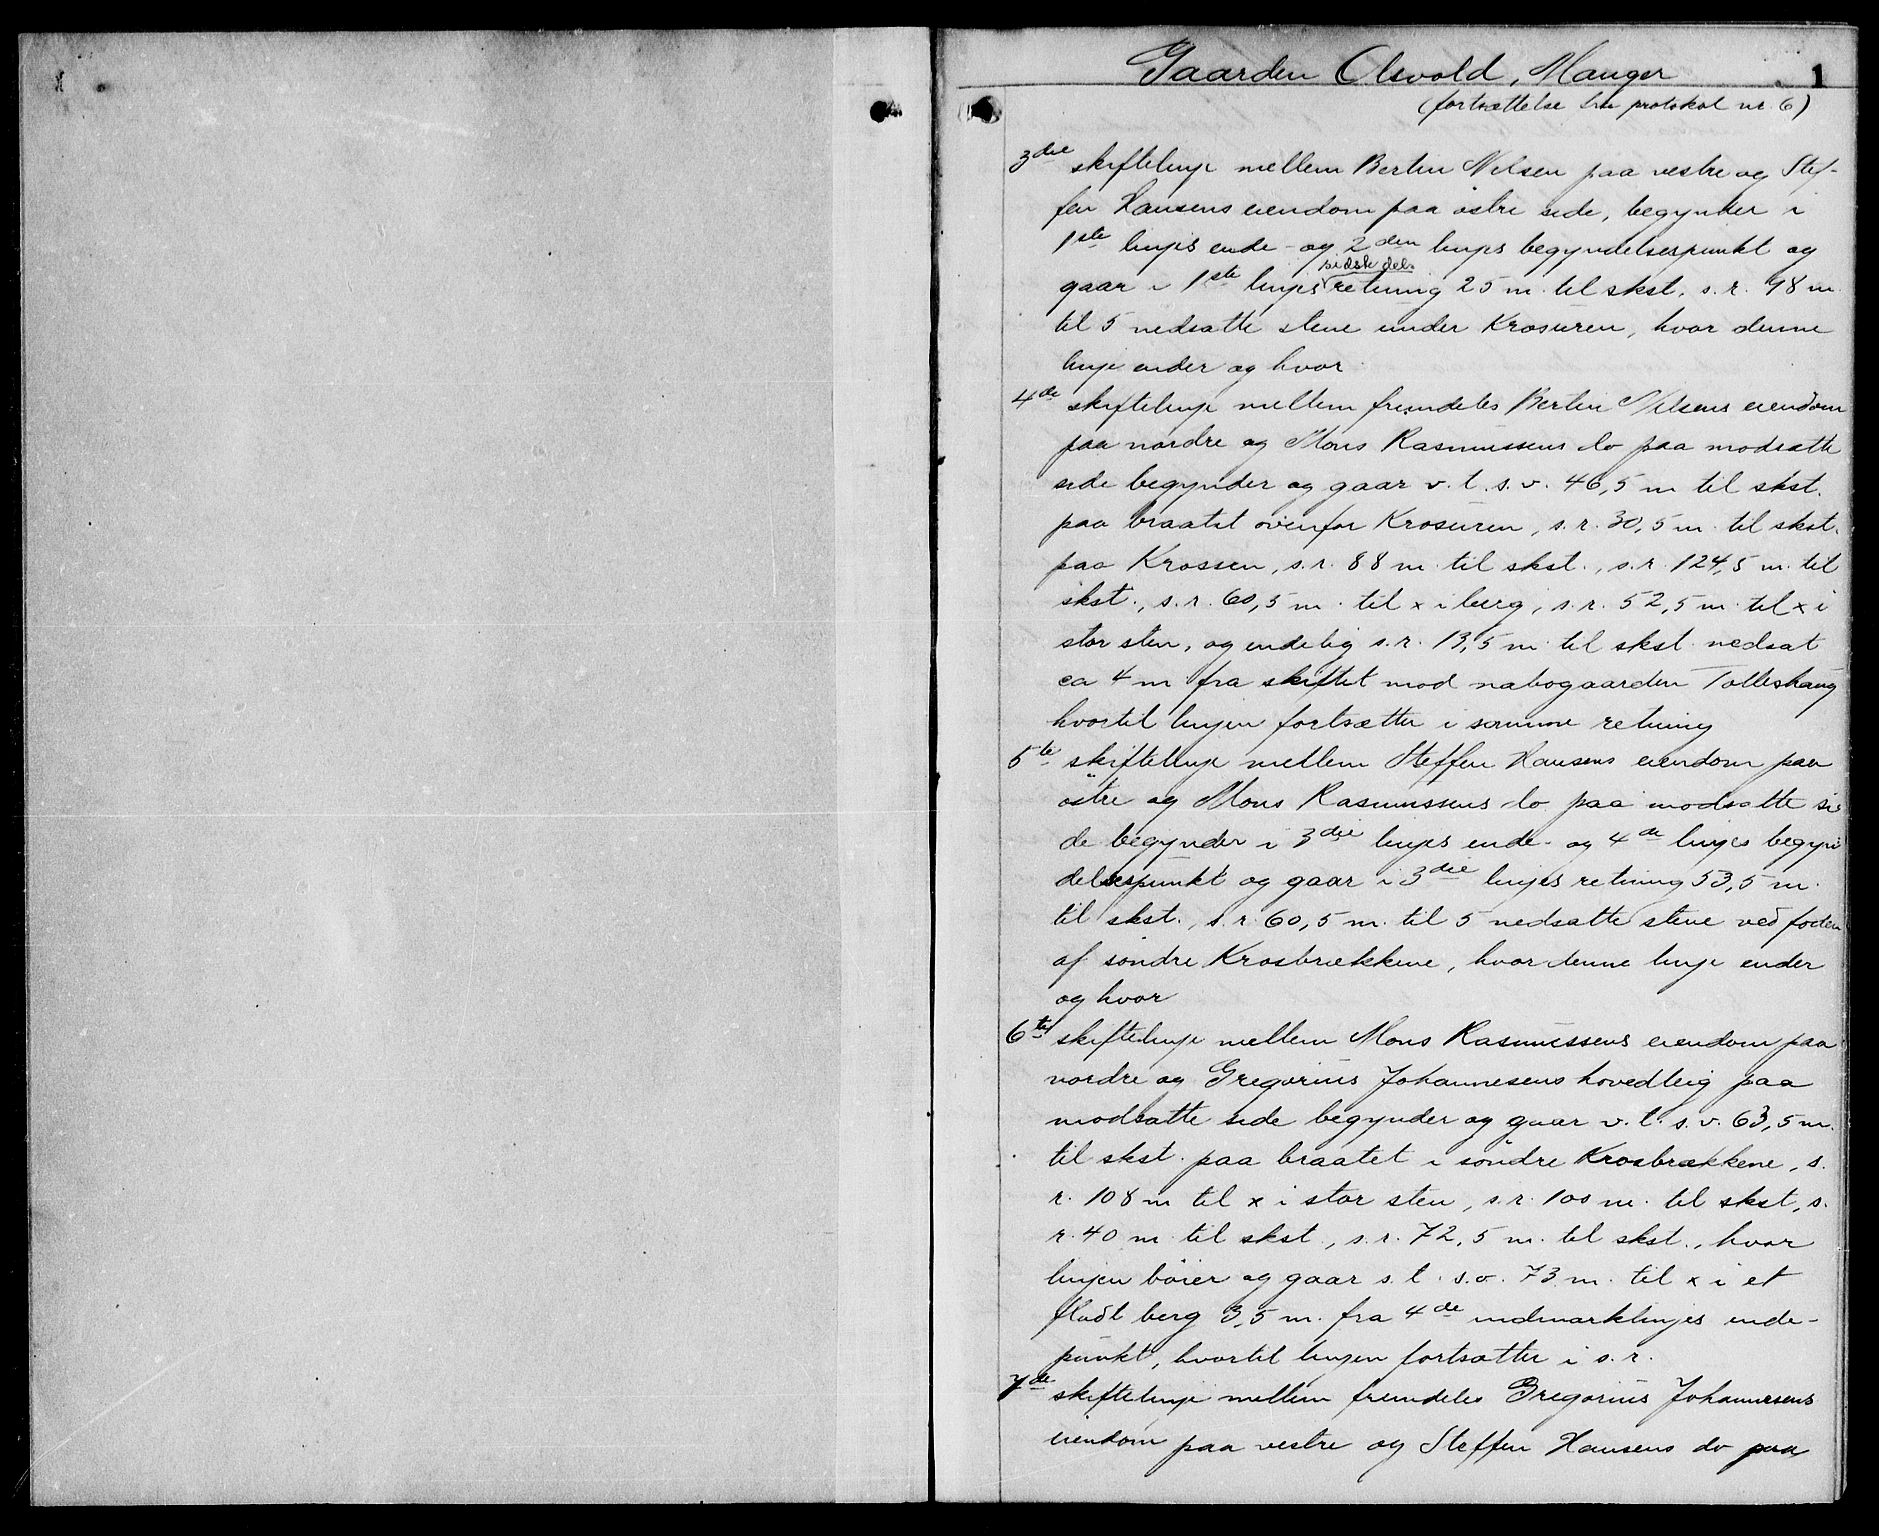 Gaarden Olsvold, Manger
1
(fortsættelse fra protokol nr. 6)
3die skiftelinje mellem Bertin Nilsen paa vestre og Stef-
fen Hansens eiendom paa østre side, begynder i
1ste linjes ende- og 2den linjes begyndelsespunkt og
sidste del.
gaar i 1ste linjes retning 25 m. til skst. s. r. 98 m.
til 5 nedsatte stene under Krosuren, hvor denne
linje ender og hvor
4de skiftelinje mellem fremdeles Bertin Nilsens eiendom
paa nordre og Mons Rasmussens do paa modsatte
side begynder og gaar v. t. s. v. 46,5 m til skst.
paa braatet ovenfor Krosuren, s. r. 30,5 m. til skst.
paa Krossen, s. r. 88 m. til skst., s. r. 124,5 m. til
skst., s. r. 60,5 m. til x i berg, s. r. 52,5 m. til x i
stor sten, og endelig s. r. 13,5 m til skst. nedsat
ca 4 m fra skiftet mod nabogaarden Tolleshaug
hvortil linjen fortsætter i samme retning
5te skiftelinje mellem Steffen Hansens eiendom paa
østre og Mons Rasmussens do paa modsatte si-
de begynder i 3die linjes ende- og 4de linjes begyn
delsespunkt og gaar i 3die linjes retning 53,5 m.
til skst., s. r. 60,5 m. til 5 nedsatte stene ved foden
af søndre Krosbrækkene, hvor denne linje ender
og hvor
6te skiftelinje mellem Mons Rasmussens eiendom paa
nordre og Gregorius Johannesens hovedteig paa
modsatte side begynder og gaar v. t. s. v. 63,5 m.
til skst. paa braatet i søndre Krosbrækkene, s.
r. 108 m til x i stor sten, s. r. 100 m. til skst, s.
r. 40 m til skst., s. r. 72,5 m. til skst., hvor
linjen bøier og gaar s. t. s. v. 73 m. til x i et
fladt berg 3,5 m. fra 4de indmarklinjes ende-
punkt, hvortil linjen fortsætter i s. r.
7de skiftelinje mellem fremdeles Gregorius Johannesens
eiendom paa vestre og Steffen Hansens do paa